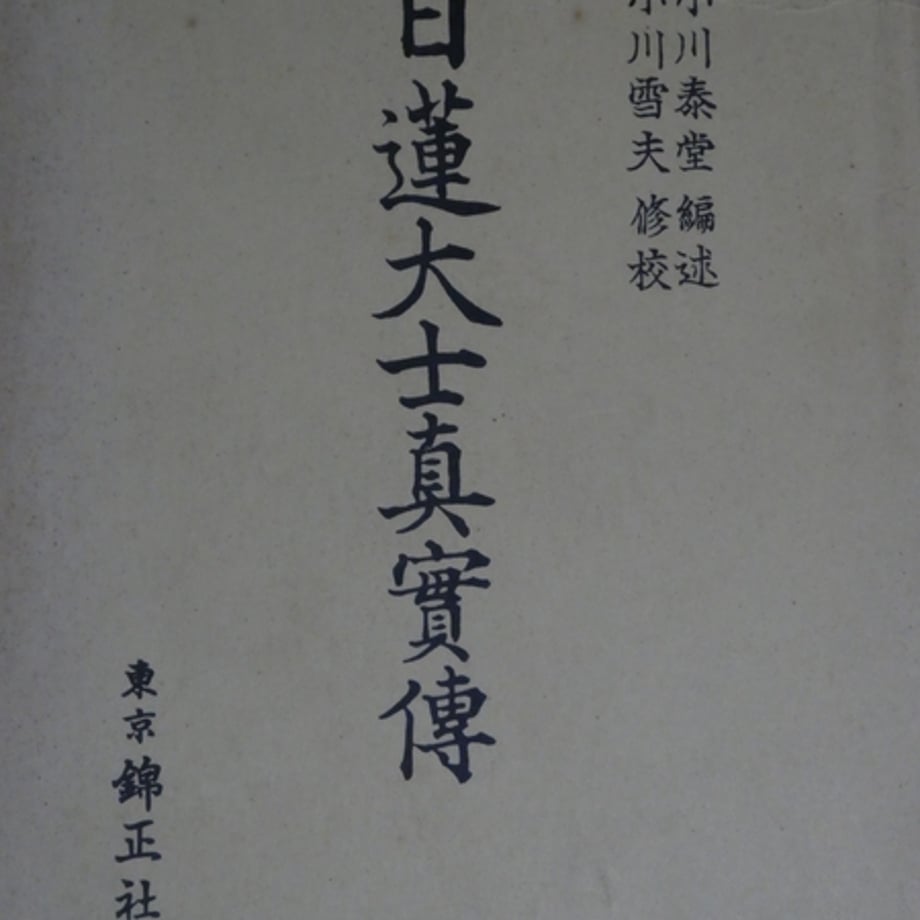 小川泰堂 編述
小川雪夫 修校
日蓮大士真實傳
東京 錦正社